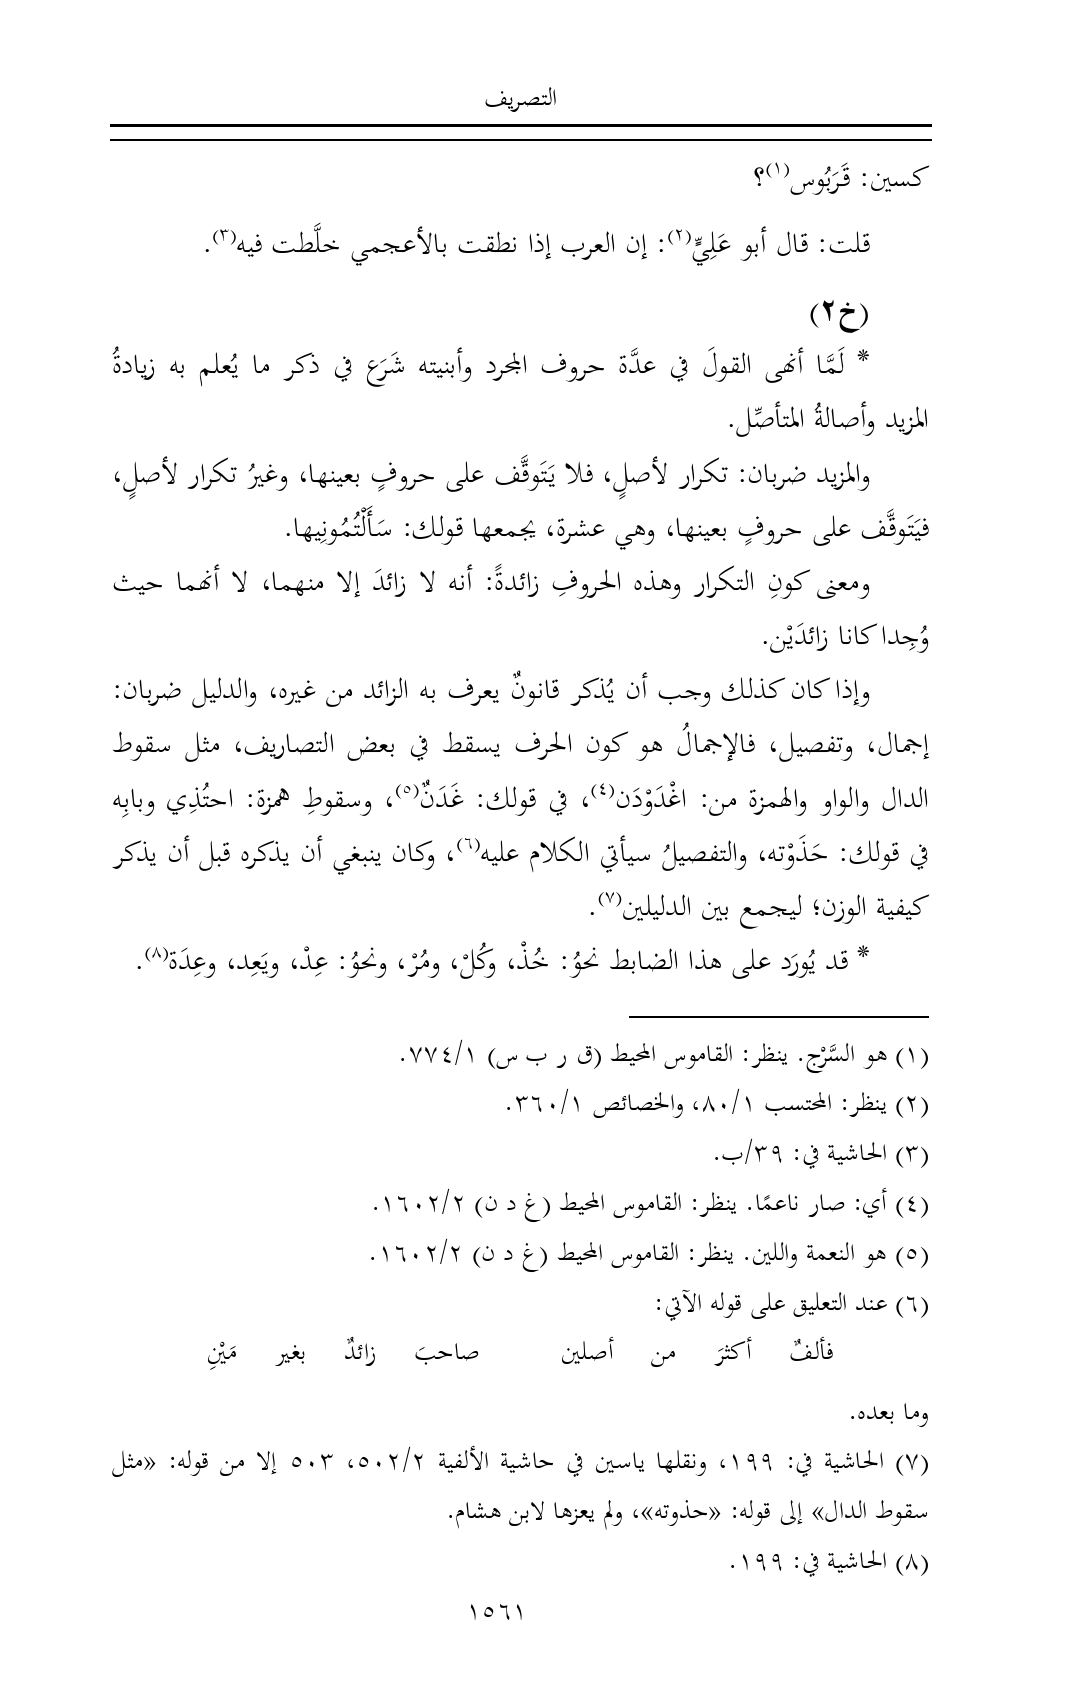 التصريف
كسين: قَرَبُوس(١)؟
قلت: قال أبو عَلِيٍّ(٢): إن العرب إذا نطقت بالأعجمي خلَّطت فيه(٣).
(خ٢)
* لَمَّا أنهى القولَ في عدَّة حروف المجرد وأبنيته شَرَع في ذكر ما يُعلم به زيادةُ
المزيد وأصالةُ المتأصِّل.
والمزيد ضربان: تكرار لأصلٍ، فلا يَتَوقَّف على حروفٍ بعينها، وغيرُ تكرار لأصلٍ،
فيَتَوقَّف على حروفٍ بعينها، وهي عشرة، يجمعها قولك: سَأَلْتُمُونِيها.
ومعنى كونِ التكرار وهذه الحروفِ زائدةً: أنه لا زائدَ إلا منهما، لا أنهما حيث
وُجِدا كانا زائدَيْن.
وإذا كان كذلك وجب أن يُذكر قانونٌ يعرف به الزائد من غيره، والدليل ضربان:
إجمال، وتفصيل، فالإجمالُ هو كون الحرف يسقط في بعض التصاريف، مثل سقوط
الدال والواو والهمزة من: اغْدَوْدَن(٤)، في قولك: غَدَنٌ(٥)، وسقوطِ همزة: احتُذِي وبابِه
في قولك: حَذَوْته، والتفصيلُ سيأتي الكلام عليه(٦)، وكان ينبغي أن يذكره قبل أن يذكر
كيفية الوزن؛ ليجمع بين الدليلين(٧).
* قد يُورَد على هذا الضابط نحوُ: خُذْ، وكُلْ، ومُرْ، ونحوُ: عِدْ، ويَعِد، وعِدَة(٨).
(١) هو السَّرْج. ينظر: القاموس المحيط (ق ر ب س) ٧٧٤/١.
(٢) ينظر: المحتسب ٨٠/١، والخصائص ٣٦٠/١.
(٣) الحاشية في: ٣٩/ب.
(٤) أي: صار ناعمًا. ينظر: القاموس المحيط (غ د ن) ١٦٠٢/٢.
(٥) هو النعمة واللين. ينظر: القاموس المحيط (غ د ن) ١٦٠٢/٢.
(٦) عند التعليق على قوله الآتي:
فألفٌ أكثرَ من أصلين صاحبَ زائدٌ بغير مَيْنِ
وما بعده.
(٧) الحاشية في: ١٩٩، ونقلها ياسين في حاشية الألفية ٥٠٢/٢، ٥٠٣ إلا من قوله: «مثل
سقوط الدال» إلى قوله: «حذوته»، ولم يعزها لابن هشام.
(٨) الحاشية في: ١٩٩.
١٥٦١